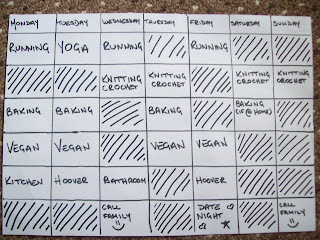 MONDAY TUESDAY WEDNESDAY THURSDAY FRIDAY SATURDAY SUNDAY
RUNNING YOGA RUNNING RUNNING
KNITTING KNITTING KNITTING KNITTING
CROCHET CROCHET CROCHET CROCHET
BAKING BAKING BAKING BAKING
(IF @ HOME)
VEGAN VEGAN VEGAN VEGAN
KITCHEN HOOVER BATHROOM HOOVER
CALL DATE CALL
FAMILY NIGHT FAMILY